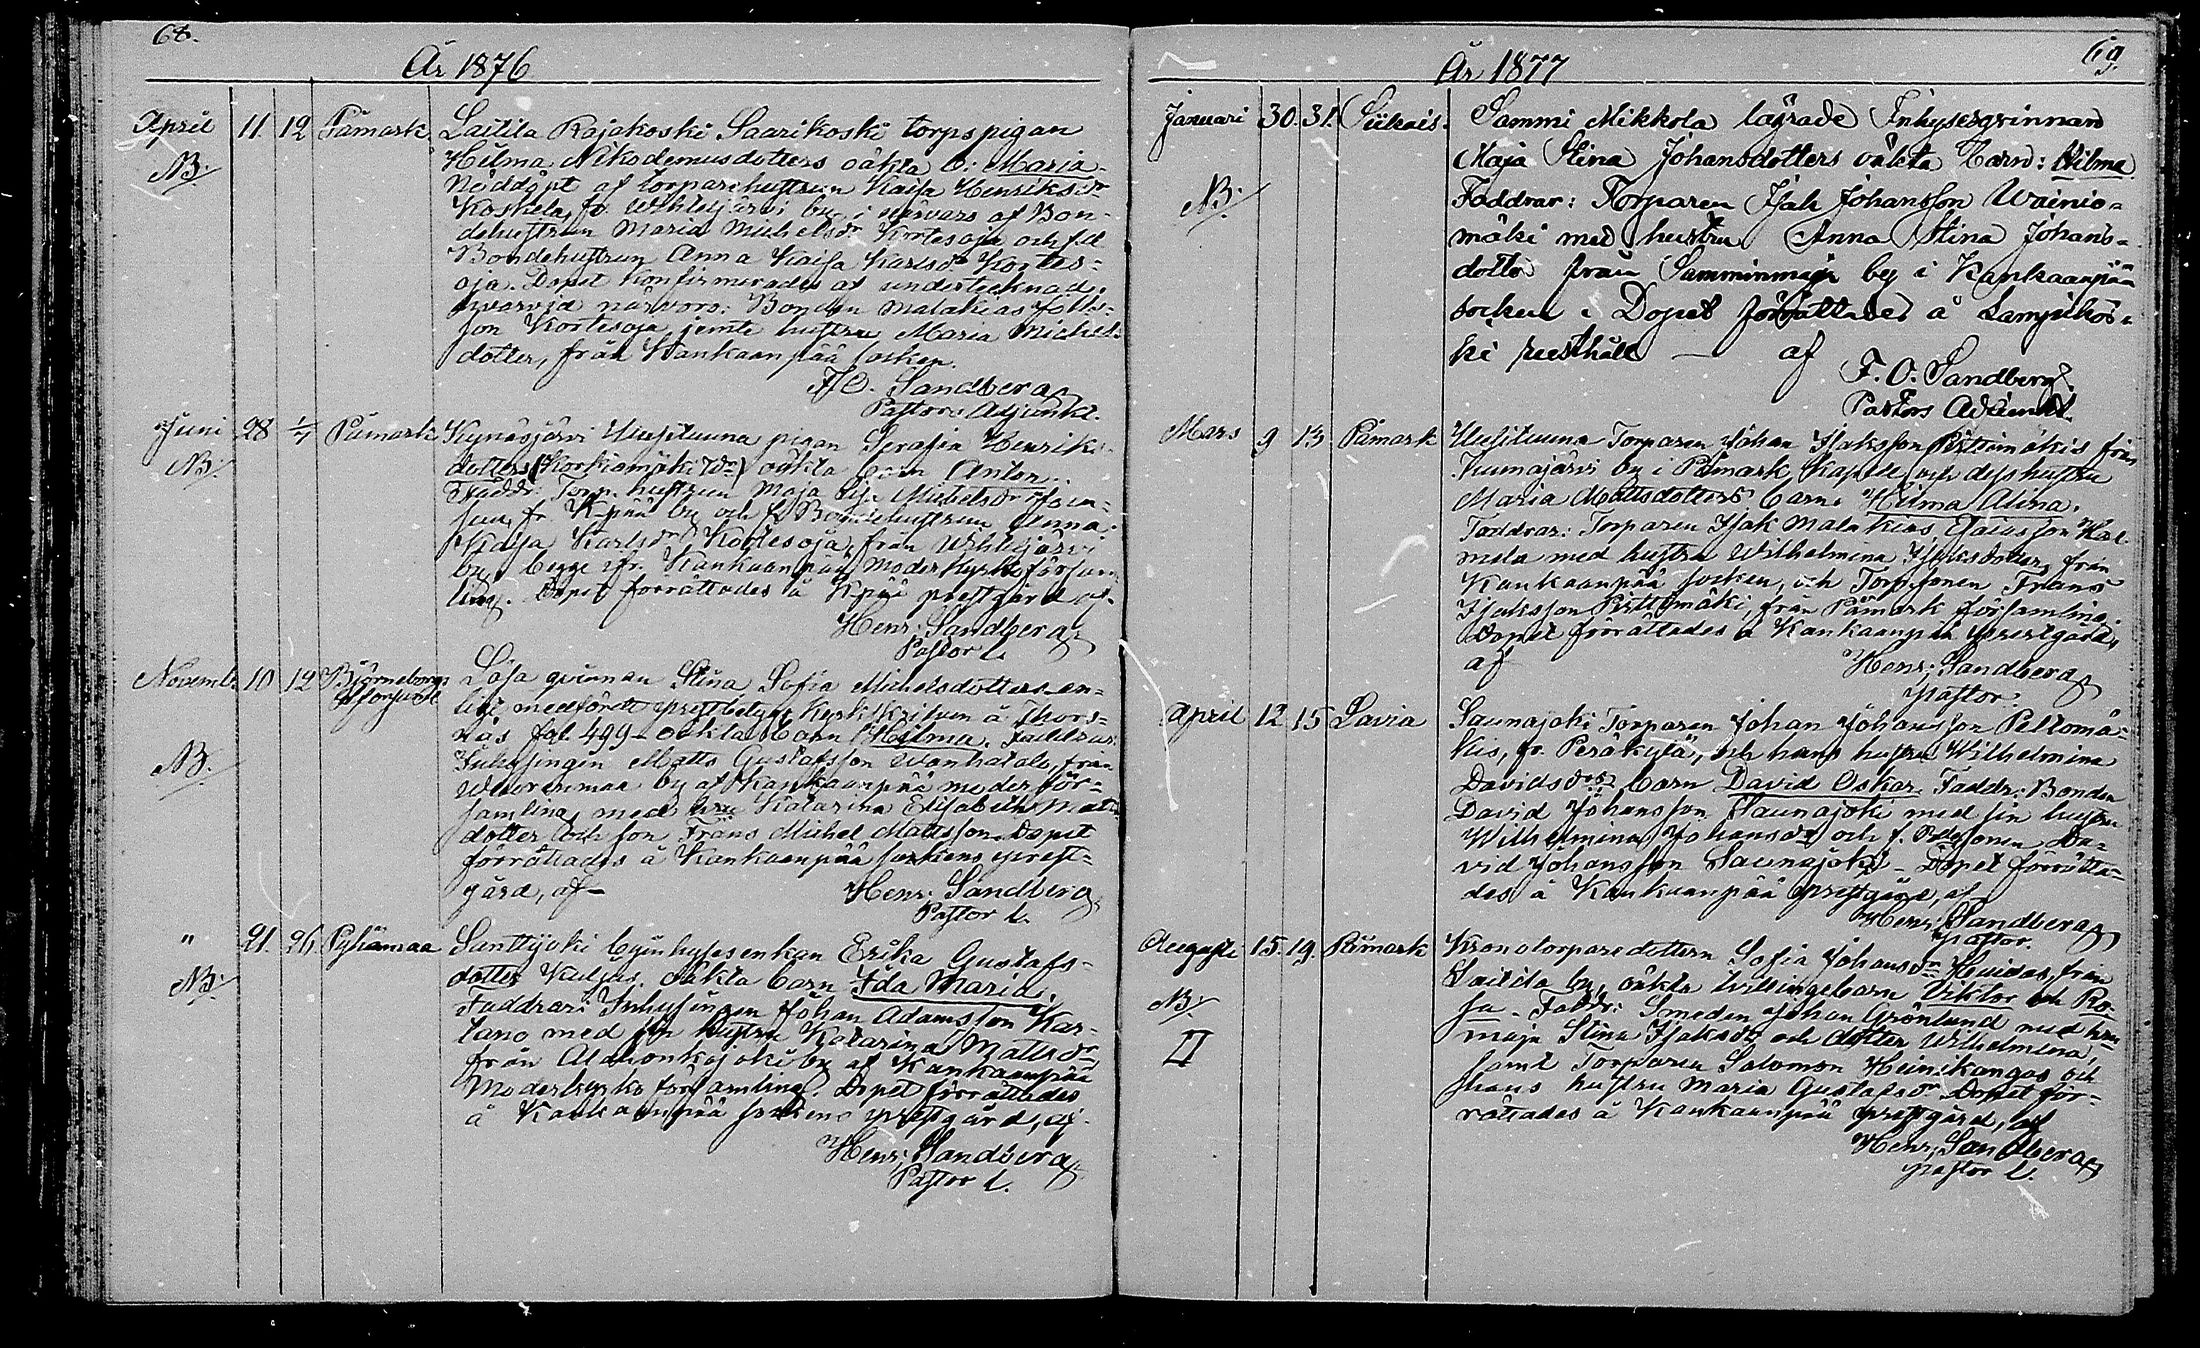 68.
År 1876
April 11 12 Påmark Laitila Rajakoski Saarikoski torpspigan
NB. Hilma Nikodemusdotters oäkta b. Maria.
Nöddöpt af torparehustrun Kaisa Henriksdr
Koskela, fr. Wihtijärvi by, i närvaro af Bon-
dehustrun Maria Michelsdr Kortesoja och f.d.
Bondehustrun Anna Kaisa Karlsdr Kortes-
oja. Dopet konfirmerades af undertecknad,
hvarvid närvoro: Bonden Malakias
son Kortesoja jemte hustru Maria Michels-
dotter, från Kankaanpää socken.
F.O. Sandberg
Pastors Adjunkt.
Juni 28 1/7 Påmark Kynäsjärvi Uusituuna pigan Serafia Henriks-
NB. dotters (Korkiamäki Tdr) oäkta barn Anton.
Faddr. Torp. hustrun Maja Michelsdr
fr. Kpää by och f.d. Bondehustrun Anna
Kaisa Karlsdr Kortesoja, från Wihtijärvi
by, begge fr. Kankaanpää Moderkyrkoförsam
ling. Dopet förrättades å Kpää prestgård af
Henr. Sandberg
Pastor l.
Novemb. 10 12 Björneborgs Lösa qvinnan Stina Sofia Michelsdotters en-
ligt medfördt prestbetyg kyrkskrifven å Thors-
NB. näs fol. 499 oäkta barn Hilma. Faddrar:
Inhysingen Matts Gustafsson Wanhatalo, från
by af Kankaanpää moderför-
samling, med hru Katarina Elisabeth Matts
dotter och son Frans Michel Mattsson. Dopet
förrättades å Kankaanpää sockens prest-
gård, af
Henr. Sandberg
Pastor l.
" 21. 26. Pyhämaa Santtijoki by inhysesenkan Erika Gustafs-
NB. dotter oäkta barn Ida Maria.
Faddrar: Inhysingen Johan Adamsson Kar-
tano med sin hustru Katarina Mattsdr
från Alahonkajoki by af Kankaanpää
Moderkyrko församling. Dopet förrättades
å Kankaanpää sockens prestgård, af
Henr. Sandberg
Pastor l.
69.
År 1877
Januari 30. 31. Siikais. Sammi Mikkola lägrade Inhysesqvinnan
Maja Stina Johansdotters oäkta Barn: Hilma
NB. Faddrar: Torparen Isak Johansson Wainio-
mäki med hustru Anna Stina Johans-
dotter från Samminmaja by i Kankaanpää
socken. Dopet förrättades å Lampikos-
ki rusthåll af
F. O. Sandberg.
Pastors Adjunkt.
Mars 9 13 Påmark Uusituuna Torparen Johan Isaksson Pirttimäkis från
by i Påmark Kapell och dess hustru
Maria Mattsdotters barn Hilma Alina.
Faddrar: Torparen Isak Malakias Esaiasson Hal-
mela med hustru Wilhelmina Isaksdotter, från
Kankaanpää socken, och Torp.sonen Frans
Isaksson Pirttimäki, från Påmark församling.
Dopet förrättades å Kankaanpää prestgård,
af Henr. Sandberg
Pastor.
April 12 15 Lavia Saunajoki Torparen Johan Johansson Peltomä-
kis, fr. Peräkylä, och hans hustru Wilhelmina
Davidsdrs barn David Oskar. Faddr.: Bonden
David Johansson Saunajoki med sin hustru
Wilhelmina Johansdr och f. Bdesonen Da-
vid Johansson Saunajoki. Dopet förrätta-
des å Kankaanpää prestgård, af
Henr. Sandberg
Pastor.
Augusti 15. 19. Påmark Kronotorparedottern Sofia Johansdr Huidas, från
NB. Laitila by, oäkta tvillingebarn Viktor och Ro-
II sa. Faddr: Smeden Johan Grönlund med hru
Maja Stina Isaksdr och dotter Wilhelmina,
samt Torparen Salomon Heinikangas och
hans hustru Maria Gustafsdr. Dopet för-
rättades å Kankaanpää prestgård, af
Henr. Sandberg
pastor l.